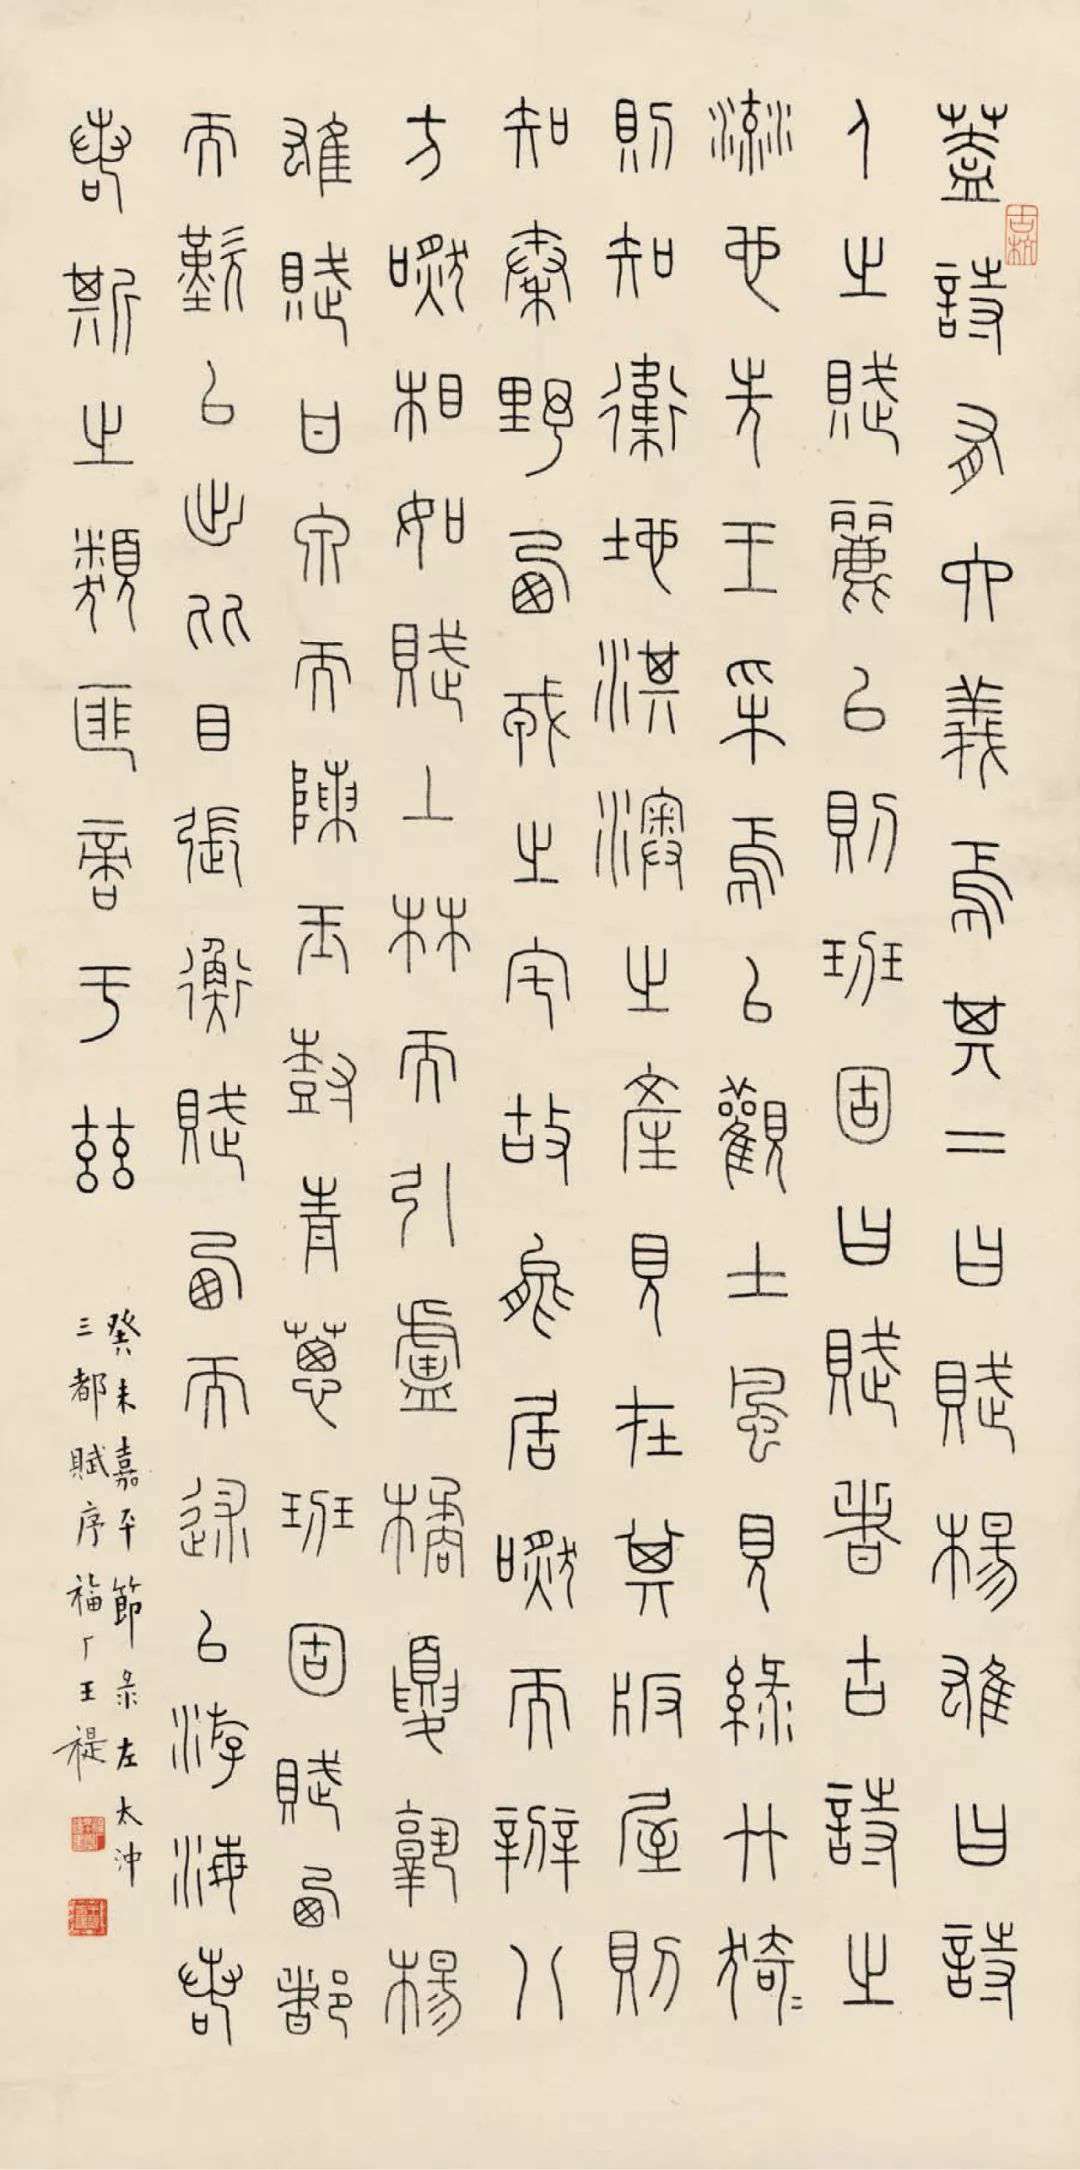 蓋詩有六義焉其二曰賦楊雄曰詩
人之賦麗以則班固曰賦者古詩之
流也先王采焉以觀土風見綠竹猗〻
則知衛地淇澳之產見在其版屋則
知秦野西戎之宅故能居然而辨八
方然相如賦上林而引盧橘夏熟楊
雄賦甘泉而陳玉樹青蔥班固賦西都
而歎以出比目張衡賦西而述以游海若
若斯之類匪啻于茲
癸未嘉平節彔左太沖
三都賦序福厂王禔
古杭